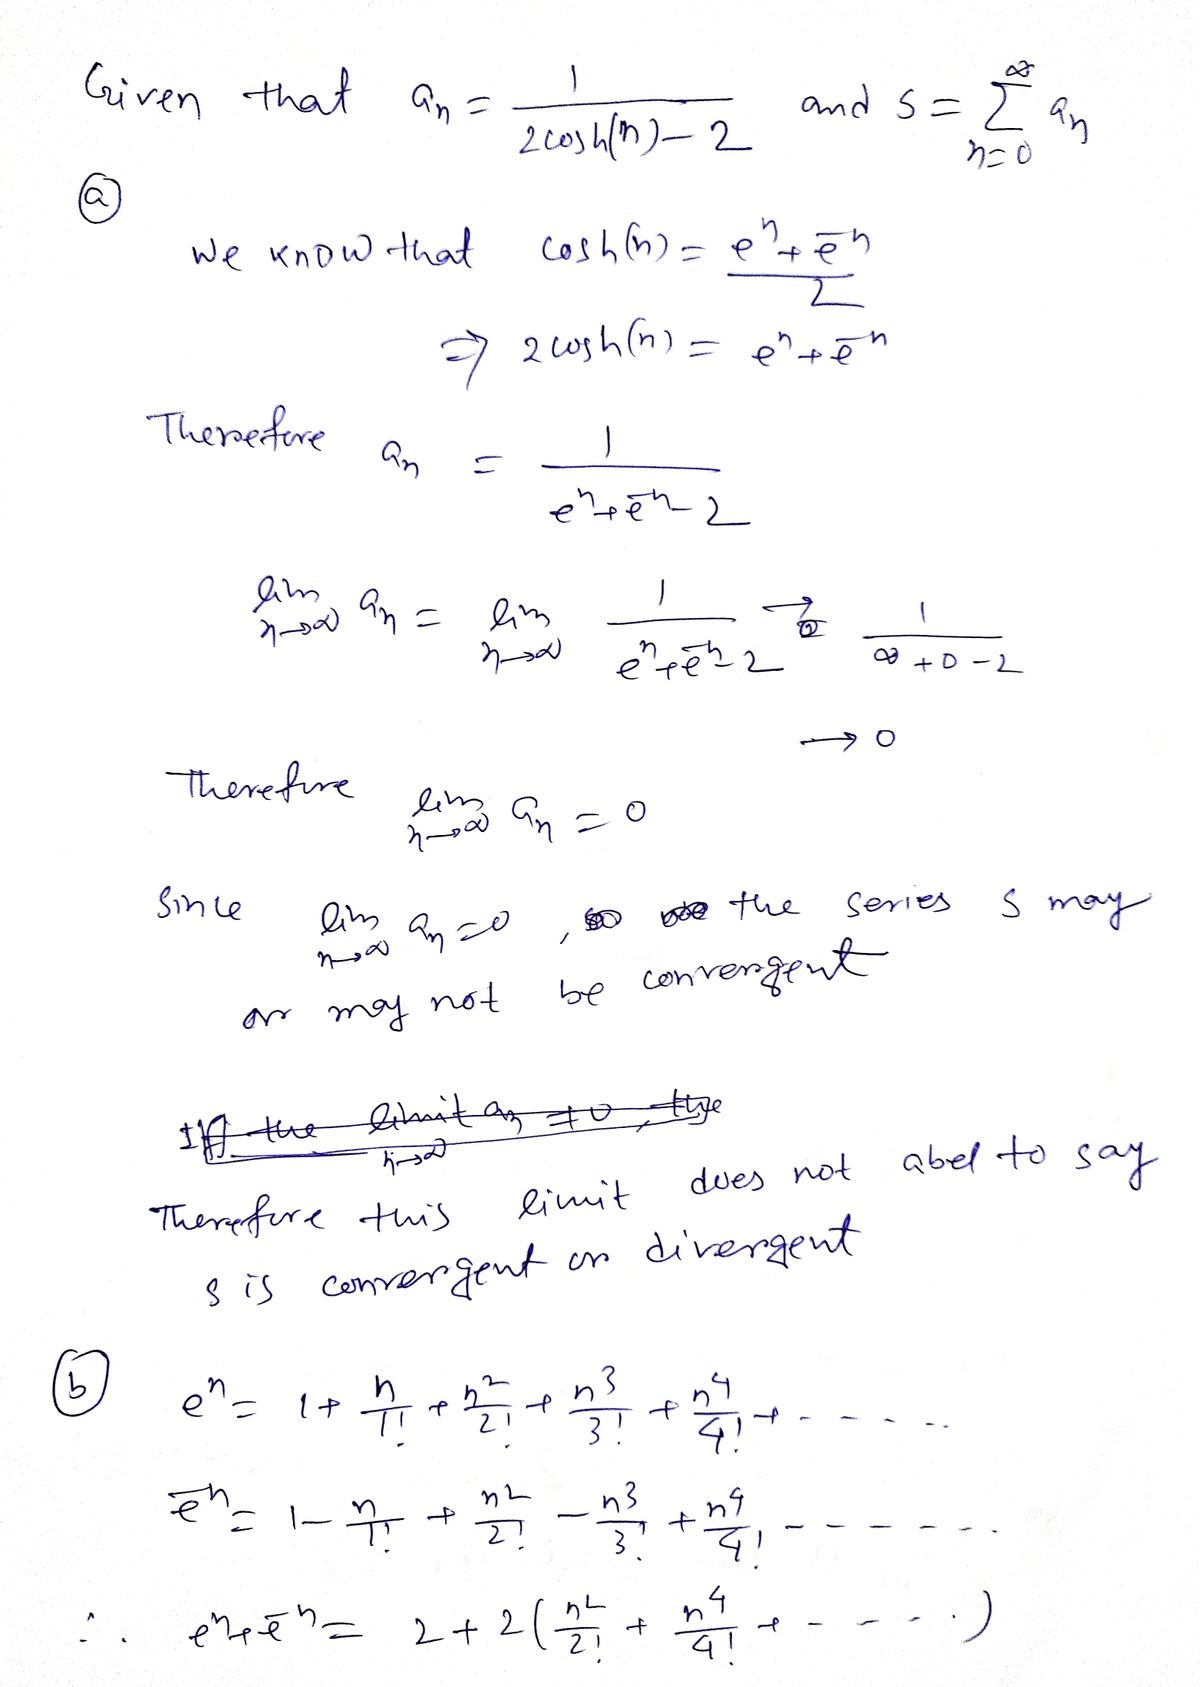 Given that a_n = 1/(2cosh(n) - 2) and S = ∑_{n=0}^{∞} a_n
(a)
We know that cosh(n) = (e^n + e^{-n})/2
⇒ 2cosh(n) = e^n + e^{-n}
Therefore a_n = 1/(e^n + e^{-n} - 2)
lim_{n→∞} a_n = lim_{n→∞} 1/(e^n + e^{-n} - 2) → 1/(∞ + 0 - 2)
→ 0
Therefore lim_{n→∞} a_n = 0
Since lim_{n→∞} a_n = 0, the series S may
or may not be convergent
If the limit_{n→∞} a_n ≠ 0, the
Therefore this limit does not abel to say
S is convergent or divergent
(b) e^n = 1 + n/1! + n^2/2! + n^3/3! + n^4/4! + - - - - - -
e^{-n} = 1 - n/1! + n^2/2! - n^3/3! + n^4/4! - - - - - - -
∴ e^n + e^{-n} = 2 + 2(n^2/2! + n^4/4! + - - - - -)